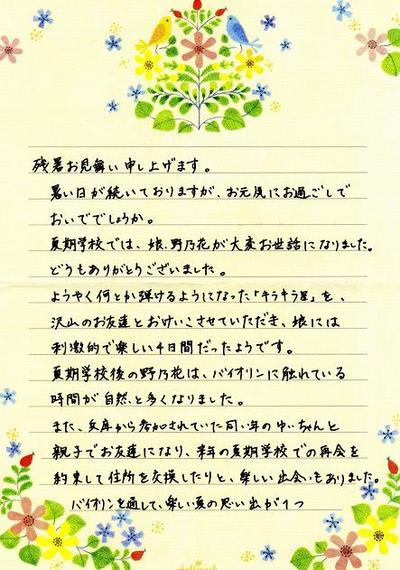 残暑お見舞い申し上げます。
暑い日が続いておりますが、お元気にお過ごしで
おいででしょうか。
夏期学校では、娘、野乃花が大変お世話になりました。
どうもありがとうございました。
ようやく何とか弾けるようになった「キラキラ星」を、
沢山のお友達とおけいこさせていただき、娘には
刺激的で楽しい4日間だったようです。
夏期学校後の野乃花は、バイオリンに触れている
時間が自然と多くなりました。
また、兵庫から参加されていた同い年のゆいちゃんと
親子でお友達になり、来年の夏期学校での再会を
約束して住所を交換したりと、楽しい出会いもありました。
バイオリンを通して、楽しい夏の思い出が1つ